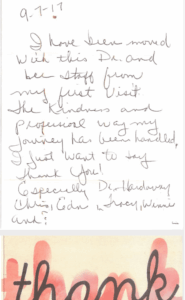 9-7-17
I have been moved
with this Dr. and
her staff from
my first visit
the kindness and
profesional way my
journey has been handled,
I just want to say
thank you!
Especially Dr. Hardaway
Chris, Edn, Tracy, Winnie
and?
thank